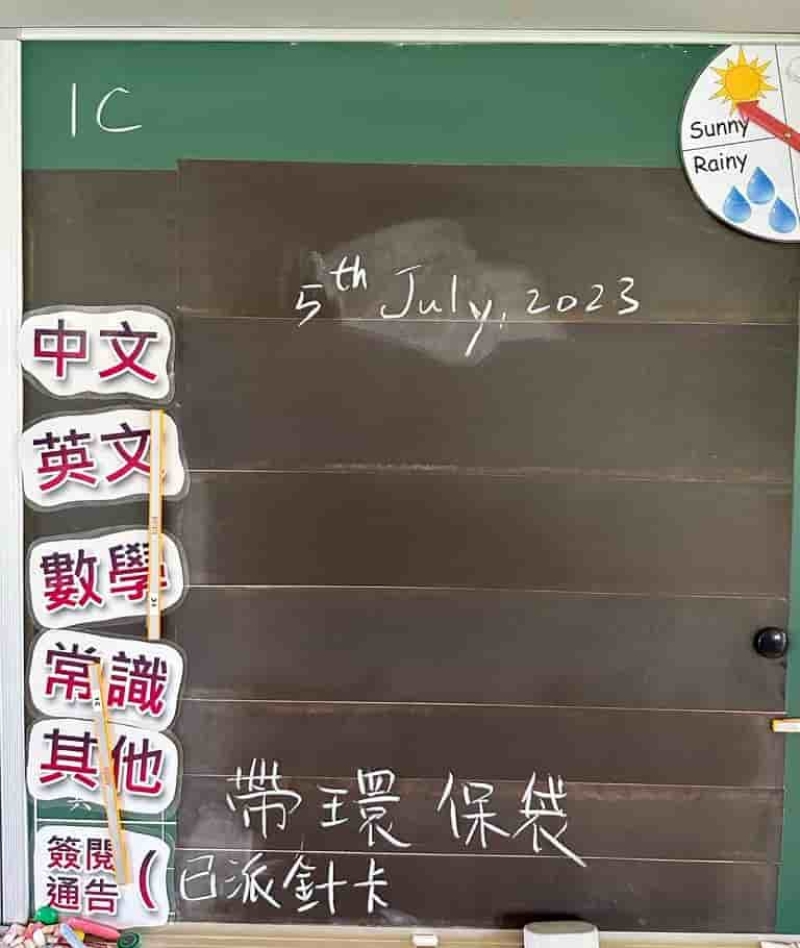 1C
Sunny
Rainy
5th July, 2023
中文
英文
數學
常識
其他
帶環保袋
簽閱
通告
(已派針卡